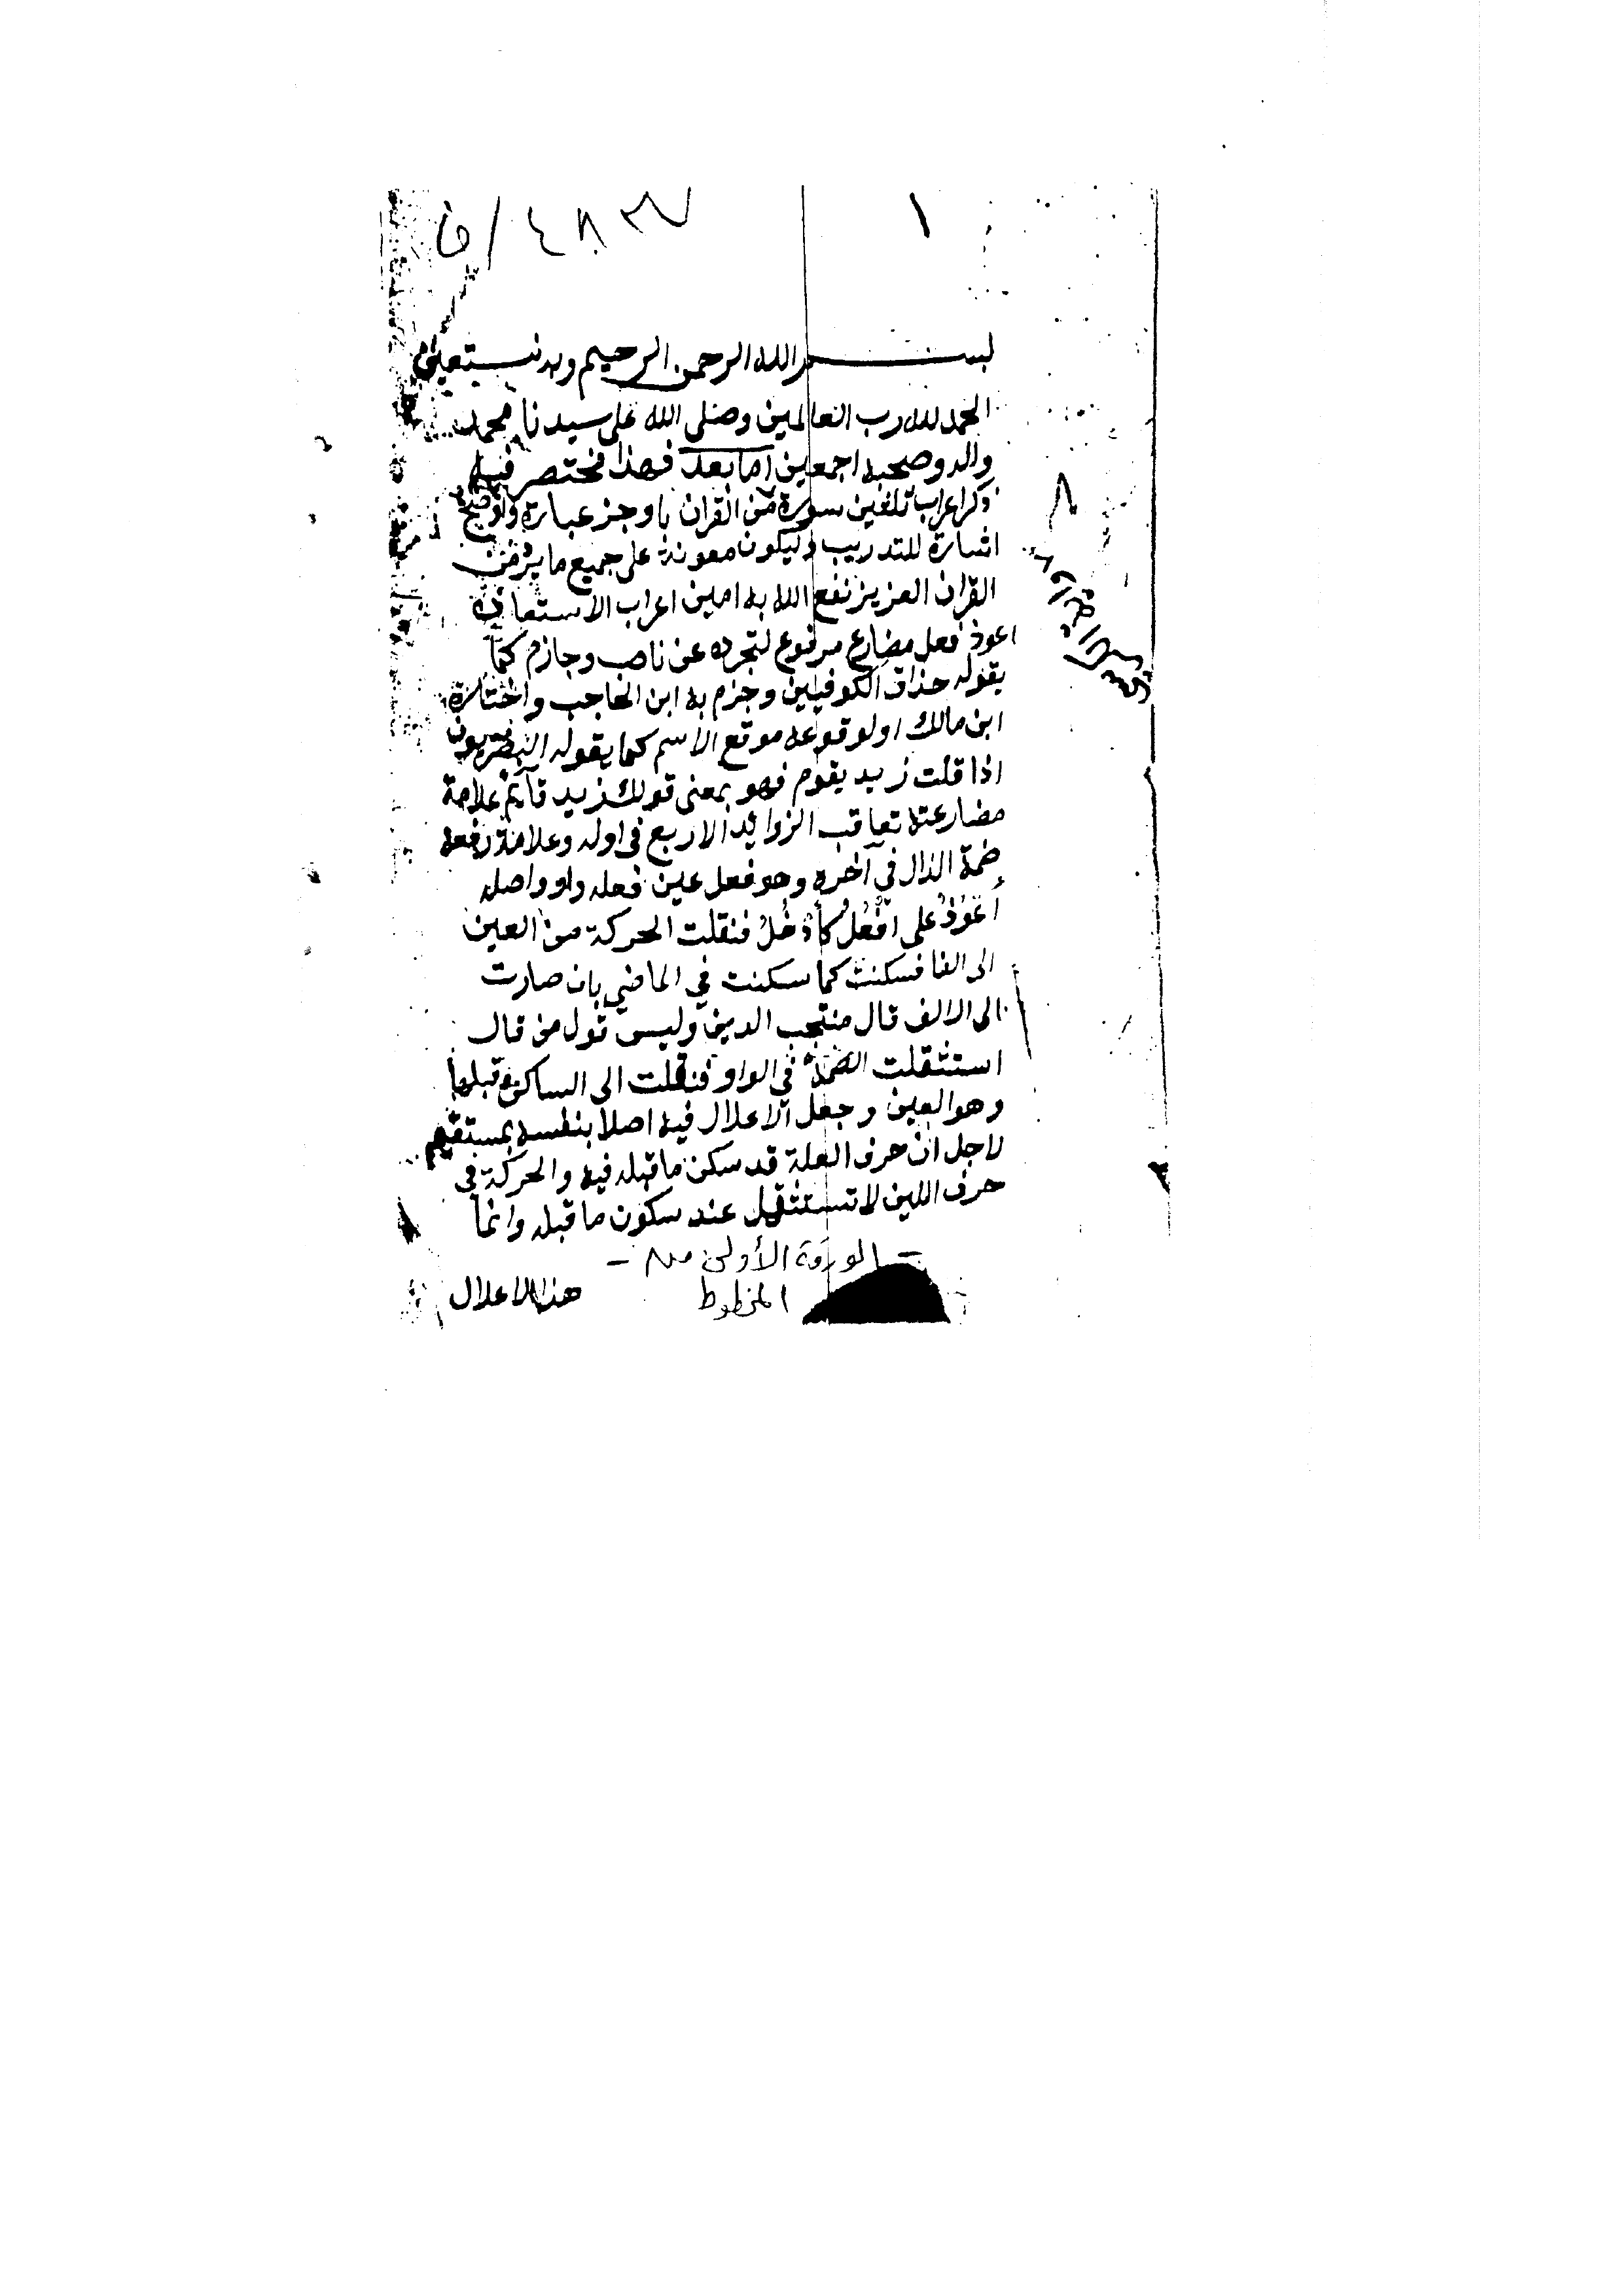 ١
٤٨٣٧/ف
بسم الله الرحمن الرحيم وبه نستعين
الحمد لله رب العالمين وصلى الله على سيدنا محمد
واله وصحبه اجمعين اما بعد فهذا مختصر فيه
ذكر اعراب ثلثين سورة من القران باوجز عبارة واوضح
اشارة للتدريب وليكون معونة على جميع ما يرد من
القران العزيز نفع الله به امين اعراب الاستعاذة
اعوذ فعل مضارع مرفوع لتجرده عن ناصب وجازم كما
يقوله حذاق الكوفيين وجزم به ابن الحاجب واختاره
ابن مالك او لوقوعه موقع الاسم كما يقوله البصريون
اذا قلت زيد يقوم فهو بمعنى قولك زيد قآئم علامة
مضارعته تعاقب الزوائد الاربع في اوله وعلامة رفعه
ضمة الذال في آخره وهو فعل عين فعله واو واصله
أَعْوُذُ على افْعُلُ كأدْخُلُ فنقلت الحركة من العين
الى الفا فسكنت كما سكنت في الماضي بان صارت
الى الالف قال منتجب الدين وليس قول من قال
استثقلت الضمة في الواو فنقلت الى الساكن قبلها
وهو العين وجعل الاعلال فيه اصلا بنفسه بمستقيم
لاجل ان حرف العلة قد سكن ما قبله فيه والحركة في
حرف اللين لا تستثقل عند سكون ما قبله وانما
هذا الاعلال
- الورقة الأولى من -
المخطوط